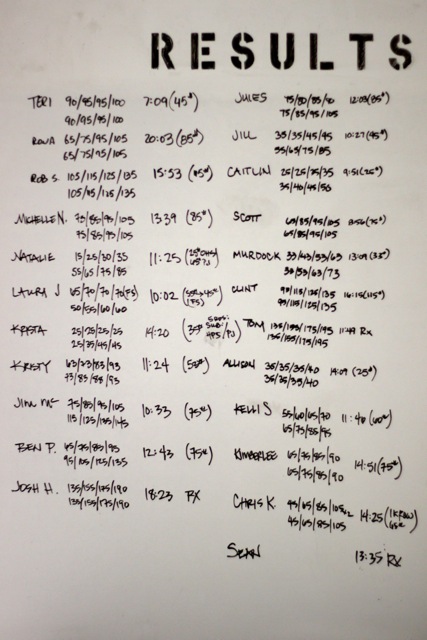 RESULTS
TERI 90/85/95/100 7:09 (45#)
90/95/95/100
RONA 65/75/95/105 20:03 (85#)
65/75/95/105
ROB S. 103/115/125/135 15:53 (85#)
105/115/125/135
MICHELLE N. 75/85/95/105 13:39 (85#)
75/85/95/105
NATALIE 15/25/30/35 11:25
55/65/75/85
LAURA J 65/70/70/70(F3) 10:02
50/55/60/60
KRISTA 25/25/25/25 14:20
25/35/45/45
KRISTY 63/73/83/93 11:24 (55#)
73/83/83/93
JIM MC 75/85/95/105 10:33 (75#)
115/125/135/145
BEN P. 65/75/85/95 12:43 (75#)
95/105/125/135
JOSH H. 135/155/175/190 18:23 RX
135/155/175/190
JULES 75/80/85/90 12:03 (85#)
75/85/95/105
JILL 35/35/45/45 10:27 (45#)
55/65/75/85
CAITLIN 25/25/25/35 9:51 (25#)
35/40/45/50
SCOTT 65/85/95/105 (75#)
65/85/95/105
MURDOCK 33/43/53/63 13:09 (33#)
CLINT 90/115/125/135 16:15 (115#)
95/115/125/135
TOM 135/155/175/195 11:49 RX
135/155/175/195
ALLISON 35/35/35/40 14:09 (25#)
35/35/35/40
KELLI S 55/60/65/70 11:40 (60#)
65/75/85/95
KIMBERLEE 65/75/85/90 14:51 (75#)
65/75/85/90
CHRIS K. 45/65/85/105 14:25 (1 KROW 65#)
45/65/85/105
SEAN 13:35 RX